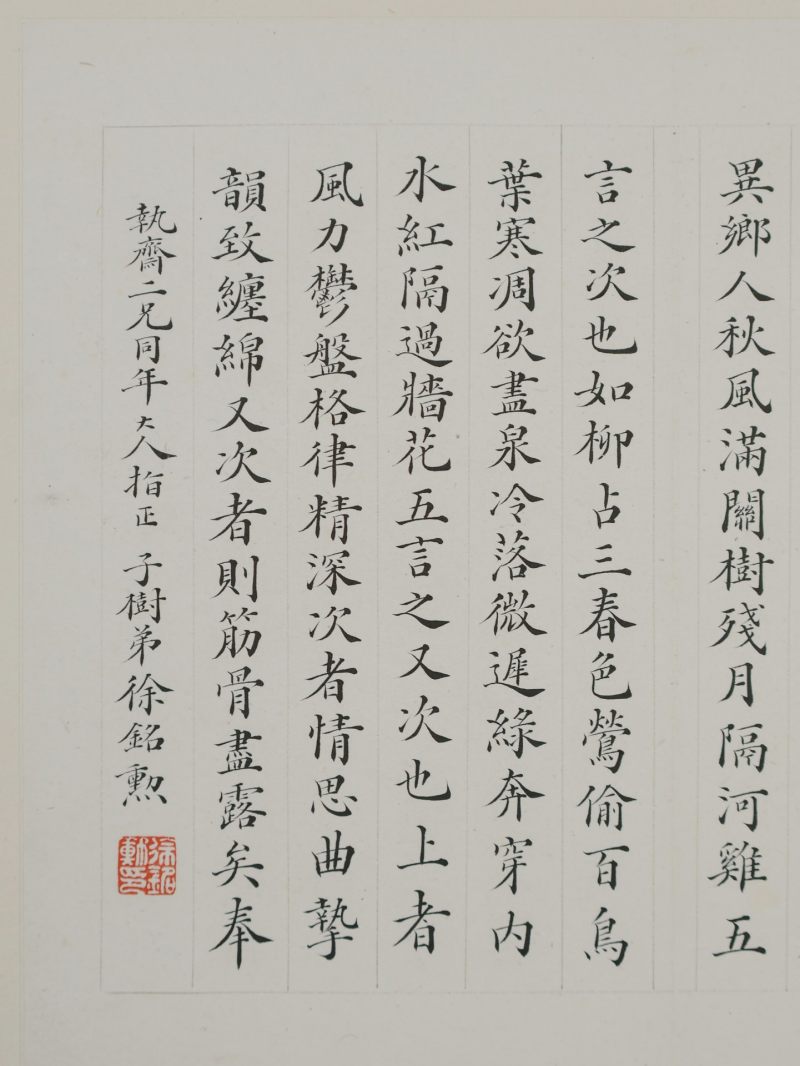 異鄉人秋風滿關樹殘月隔河雞五
言之次也如柳占三春色鶯偷百鳥
葉寒凋欲盡泉冷落微遲綠奔穿內
水紅隔過牆花五言之又次也上者
風力鬱盤格律精深次者情思曲摯
韻致纏綿又次者則筋骨盡露矣奉
執齋二兄同年大人指正 子樹弟徐銘勲
徐銘勲印